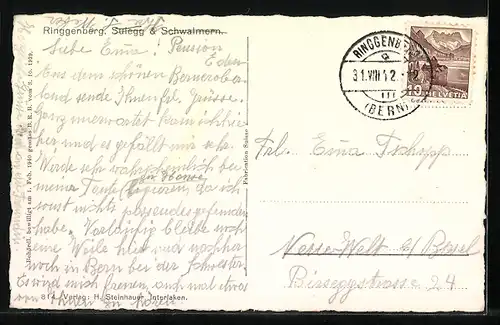 Ringgenberg. Sulegg & Schwalmern.
Liebe Emma! Pension
Eden
Aus dem schönen Berneroberland
sende Ihnen frl. Grüsse.
Ganz unerwartet kam ich hier
her und es gefällt mir sehr.
Werde sehr wahrscheinlich bei
meiner Tante
sonst nichts passendes gefunden
habe. Vorläufig bleibe noch
eine Weile hier und nachher
noch in Bern bei der Schwester.
Es wird mich freuen, auch mal etwas
von Ihnen zu hören.
814 Verlag: H. Steinhauer, Interlaken.
bewilligt am 1. Feb. 1940 gemäss B. R. B. vom 3. 10. 1939.
Fabrication Suisse
RINGGENBERG
31.VIII 42
(BERN)
10 HELVETIA
Frl. Emma Tschopp
Neue-Welt b/ Basel
Birseggstrasse 24